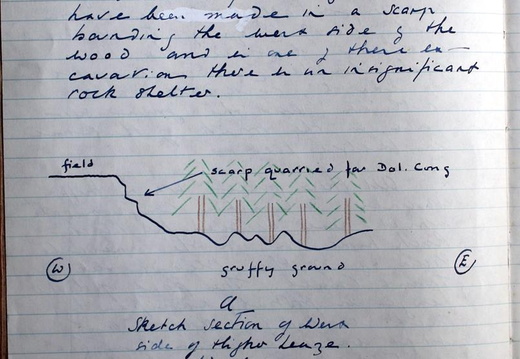 have been made in a scarp
bounding the west side of the
wood and in one of these ex-
cavations there is an insignificant
rock shelter.
field
scarp quarried for Dol. Cong
W
E
gruffy ground
a
Sketch section of West
side of Higher Leaze.